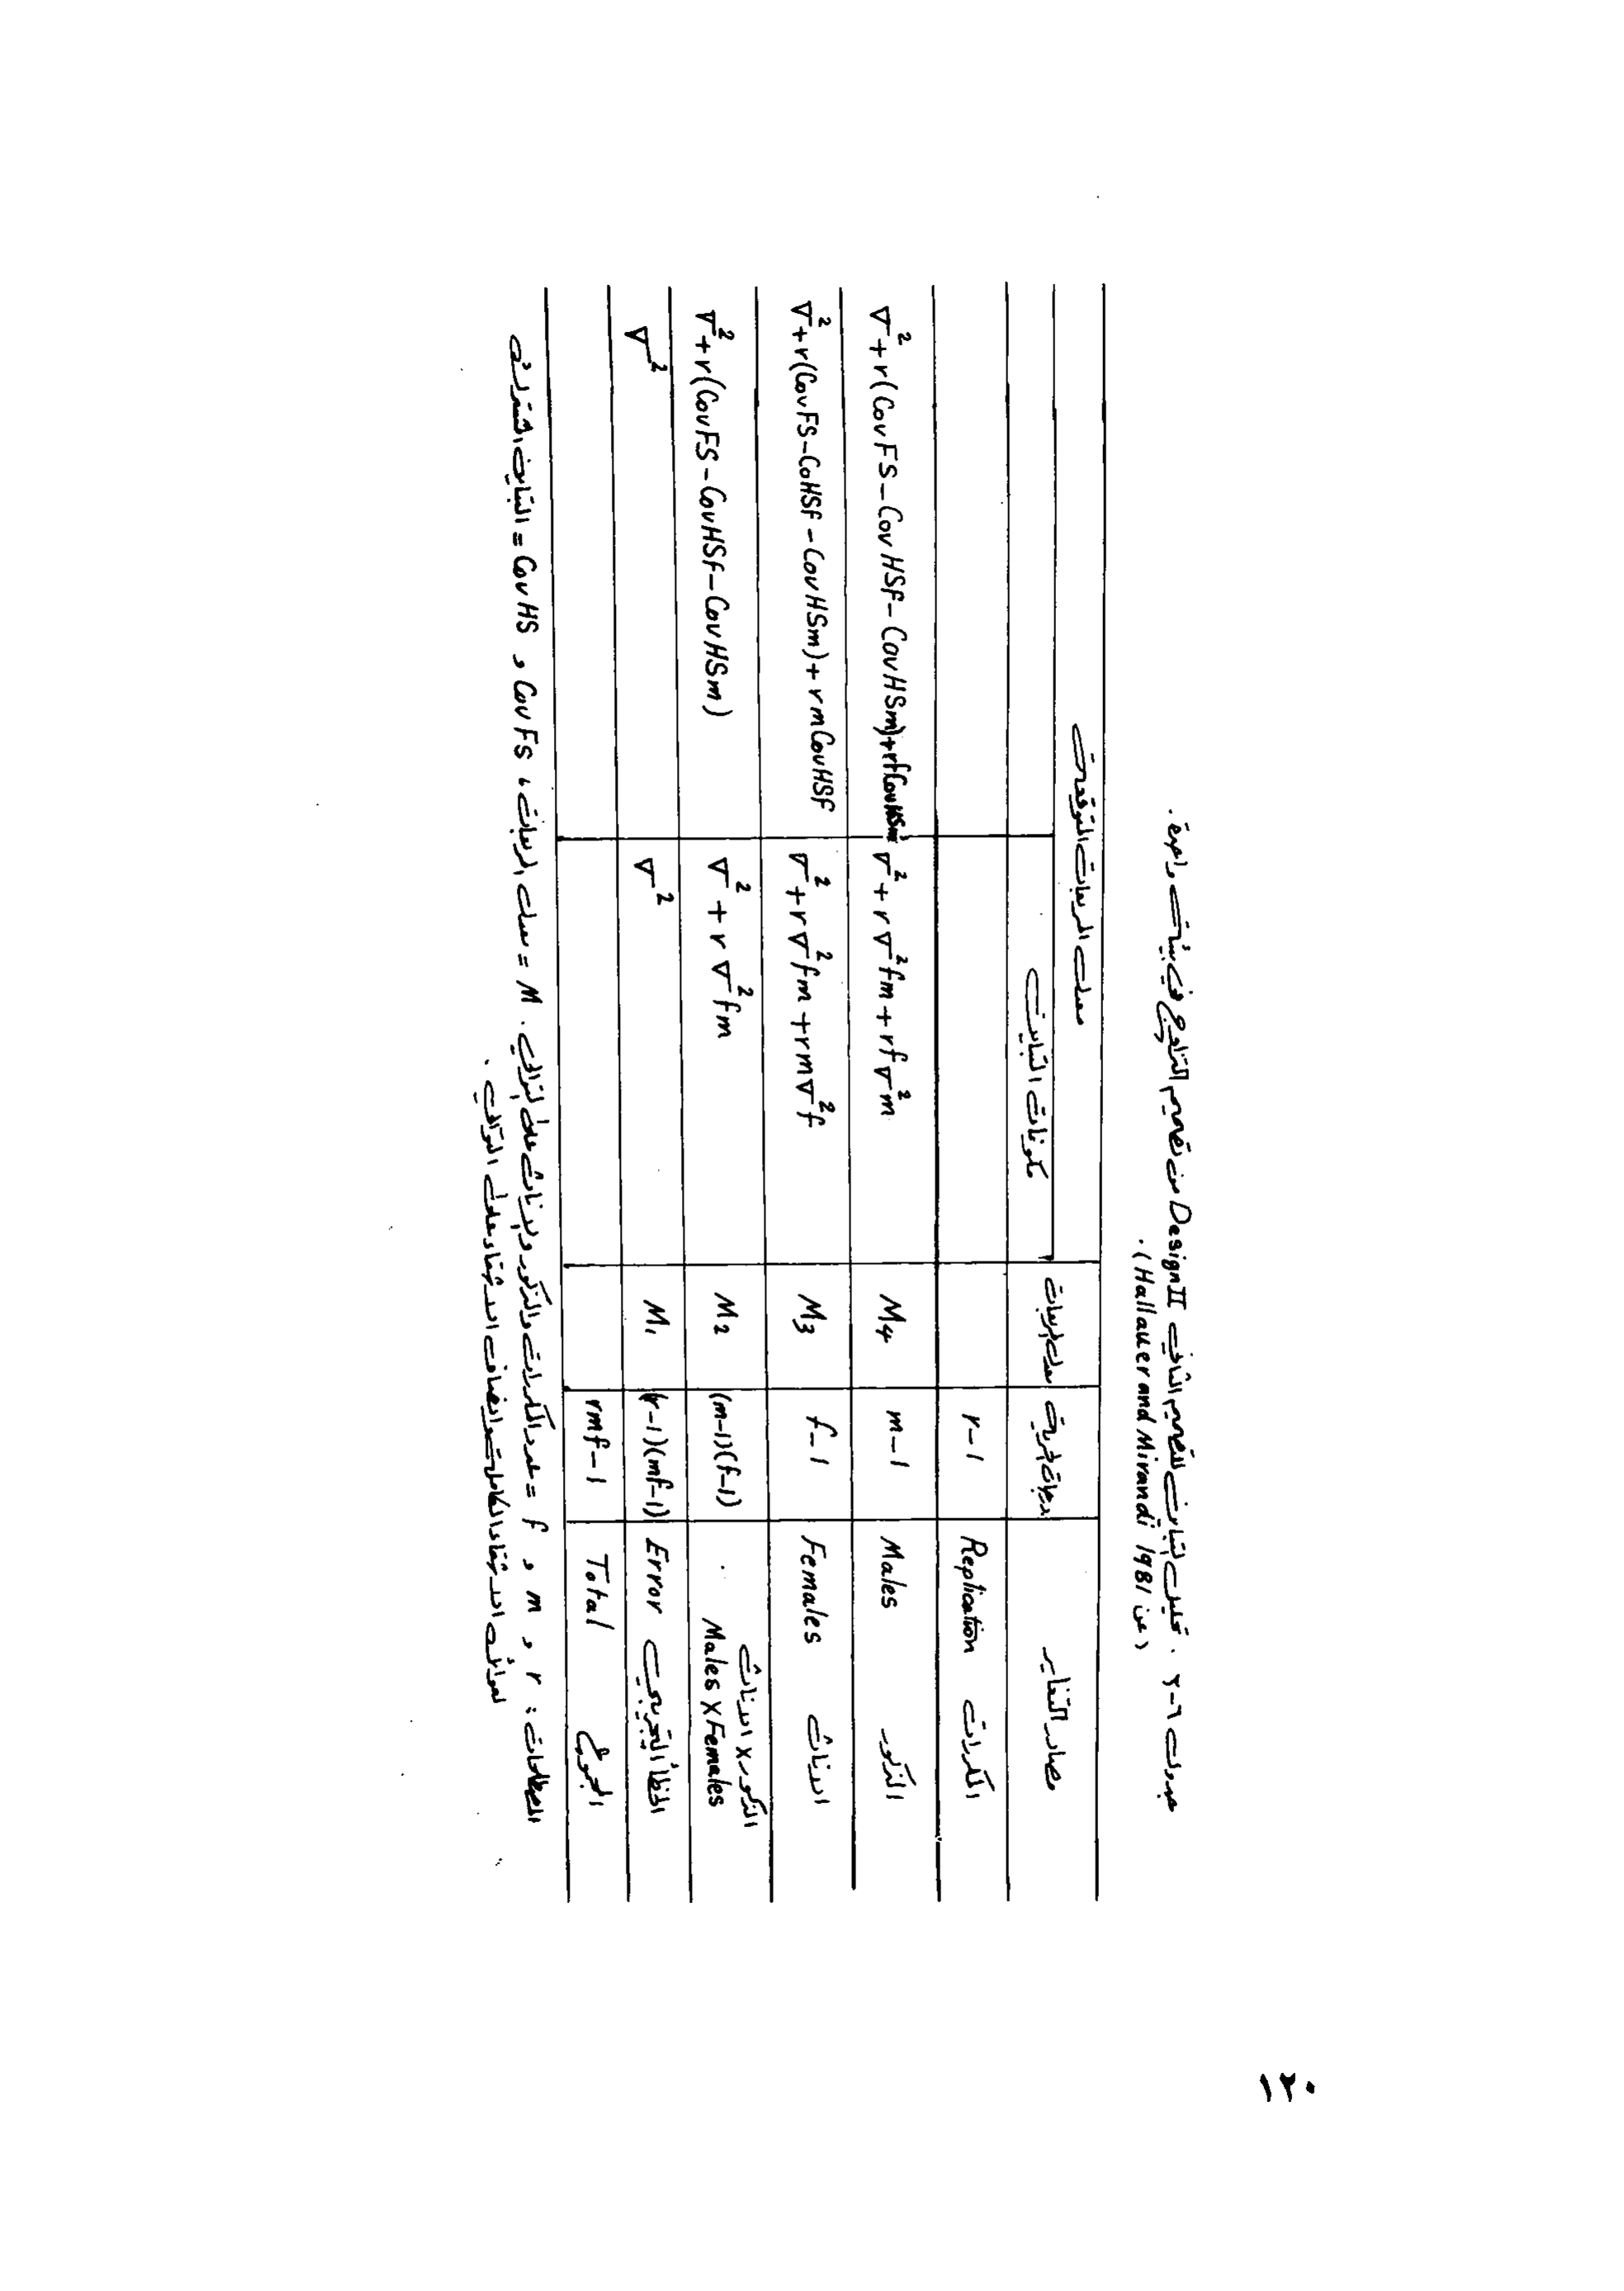 جدول ٦-٢ . تحليل التباين للتصميم الثاني Design II من تصميم التزاوج في بيئة واحدة .
( عن Hallauer and Mirandi 1981 ) .
مصادر التغاير درجات الحرية معدل المربعات معدل المربعات المتوقعة
مكونات التباين
المكررات Replication r-1
الذكور Males m-1 M4 ∇²+r∇²fm+rf∇²m ∇²+r(CovFS-CovHSf-CovHSm)+rfCovHSm
الاناث Females f-1 M3 ∇²+r∇²fm+rm∇²f ∇²+r(CovFS-CoHSf-CovHSm)+rmCovHSf
الذكور x الاناث
Males X Females (m-1)(f-1) M2 ∇²+r∇²fm ∇²+r(CovFS-CovHSf-CovHSm)
الخطأ التجريبي Error (r-1)(mf-1) M1 ∇² ∇²
المجموع Total rmf-1
المصطلحات : r , m , f = عدد المكررات والذكور والاناث على التوالي . M = معدل المربعات ، CovFS , CovHS = التباين المشترك
لعوائل الاشقاء الكاملة وانصاف الاشقاء على التوالي .
١٢٠